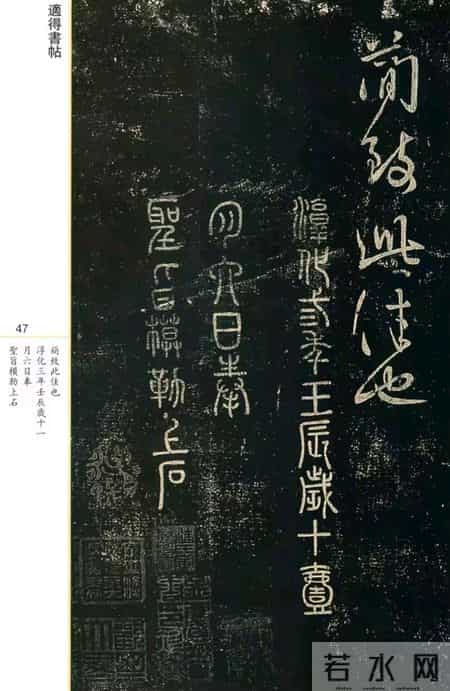 簡致此佳也
淳化弎年壬辰歲十壹
月六日奉
聖旨模勒上石
適得書帖
47
簡致此佳也
淳化三年壬辰歲十一
月六日奉
聖旨模勒上石
若水网